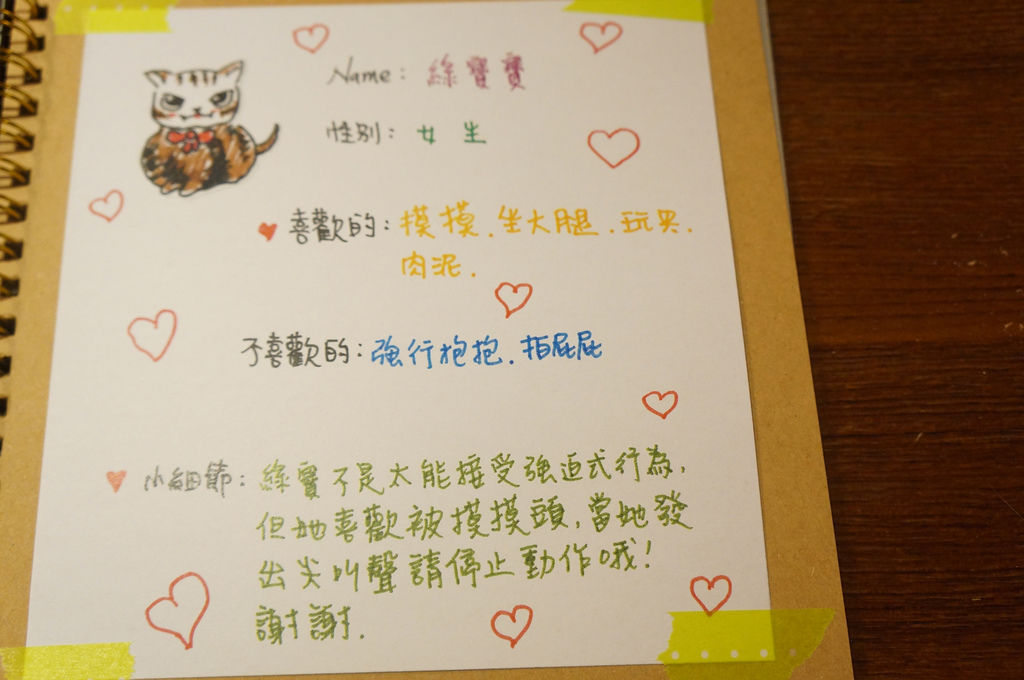 Name: 綠寶寶
性別: 女生
喜歡的: 摸摸.坐大腿.玩具.
肉泥.
不喜歡的: 強行抱抱.拍屁屁
小細節: 綠寶不是太能接受強迫式行為,
但她喜歡被摸摸頭,當她發
出尖叫聲請停止動作哦!
謝謝.